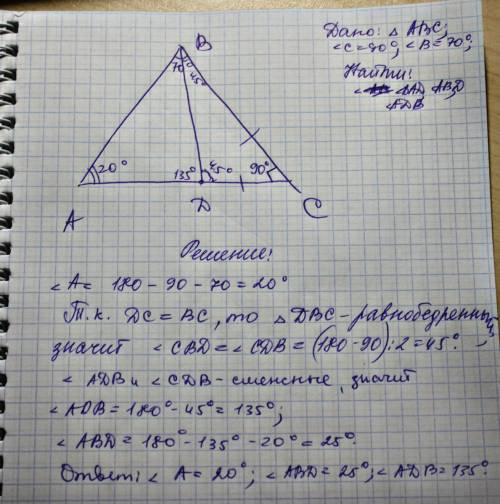 Дано: △ ABC;
∠C=90°; ∠B=70°;
Найти:
∠BAD, ABD
ADB
B
70
45°
20°
135°
45°
90°
A
D
C
Решение:
∠A= 180-90-70=20°
Т.к. DC=BC, то △ DBC-равнобедренный,
значит ∠CBD=∠CDB=(180-90):2=45°.
∠ADB и ∠CDB-смежные, значит
∠ADB=180°-45°=135°;
∠ABD=180°-135°-20°=25°.
Ответ: ∠A=20°; ∠ABD=25°; ∠ADB=135°.